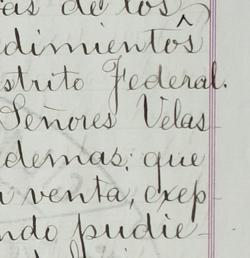 as de los
dimientos
strito Federal.
Señores Velas
demas; que
venta, exep
ndo pudie